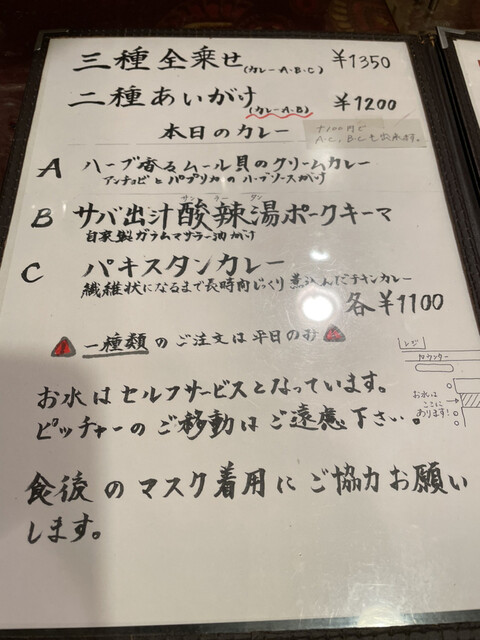 三種全乗せ(カレーA・B・C) ¥1350
二種あいがけ(カレーA・B) ¥1200
本日のカレー
+100円で
A・C, B・Cも出来ます。
A ハーブ香るムール貝のクリームカレー
アンチョビとパプリカのハーブソースがけ
サン ラー タン
B サバ出汁酸辣湯ポークキーマ
自家製ガラムマサラー油がけ
C パキスタンカレー
繊維状になるまで長時間じっくり煮込んだチキンカレー
各¥1100
一種類のご注文は平日のみ
レジ
カウンター
お水は
ここに
あります!
お水はセルフサービスとなっています。
ピッチャーのご移動はご遠慮下さい。
食後のマスク着用にご協力お願い
します。